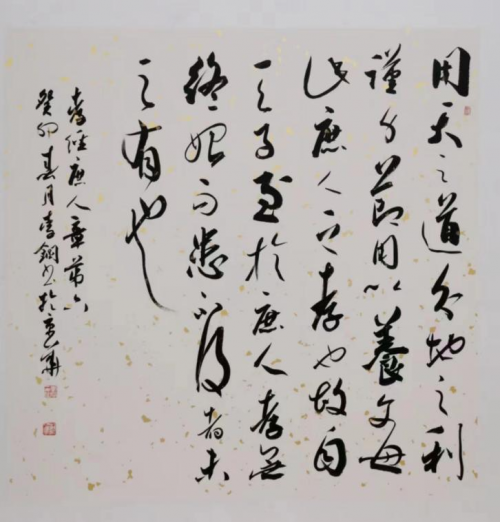 用天之道分地之利
謹身節用以養父母
此庶人之孝也故自
天子至於庶人孝無
終始而患不及者未
之有也
孝經庶人章第六
癸卯春月鋼書於京華